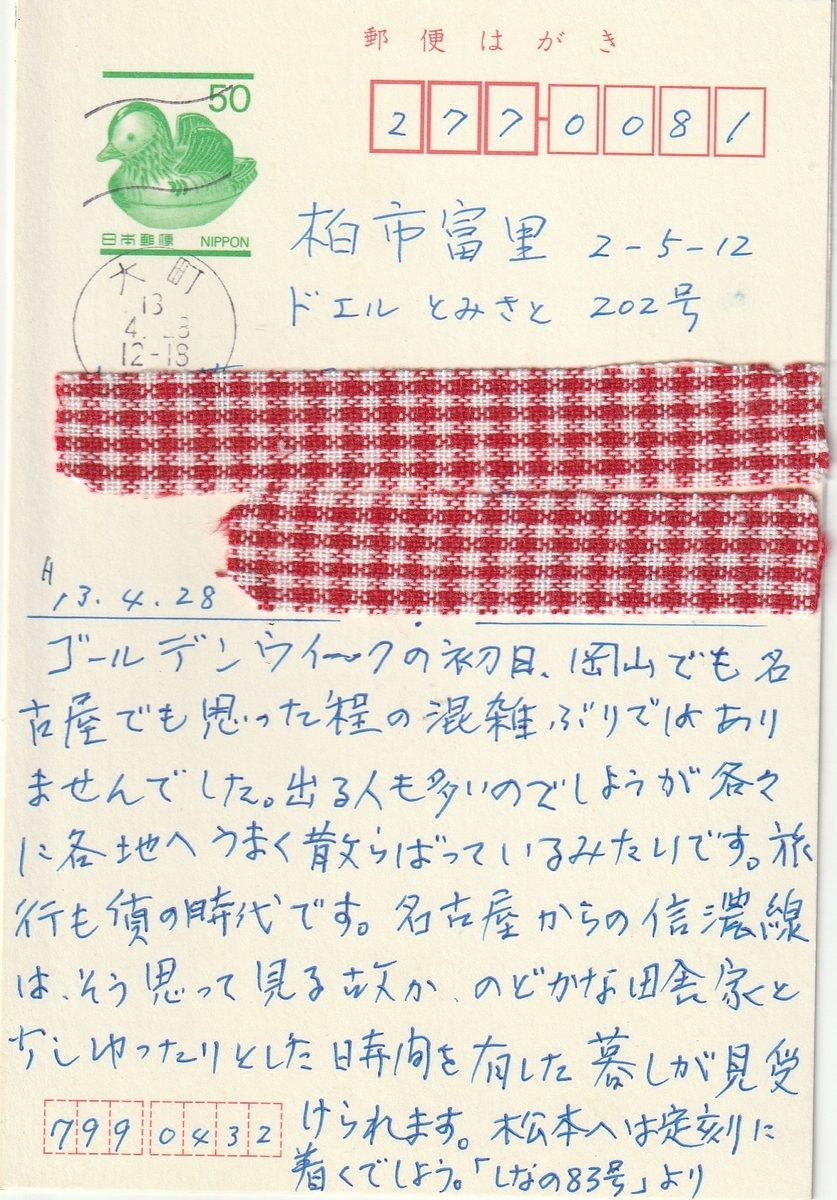 郵便はがき
50
277-0081
日本郵便 NIPPON
柏市富里 2-5-12
大町
13
4. 28
12-18
ドエル とみさと 202号
H
13.4.28
ゴールデンウイークの初日、岡山でも名
古屋でも思った程の混雑ぶりではあり
ませんでした。出る人も多いのでしようが各々
に各地へうまく散らばっているみたいです。旅
行も価の時代です。名古屋からの信濃線
は、そう思って見る故か、のどかな田舎家と
少しゆったりとした時間を有した暮しが見受
けられます。松本へは定刻に
着くでしよう。「しなの83号」より
799 0432